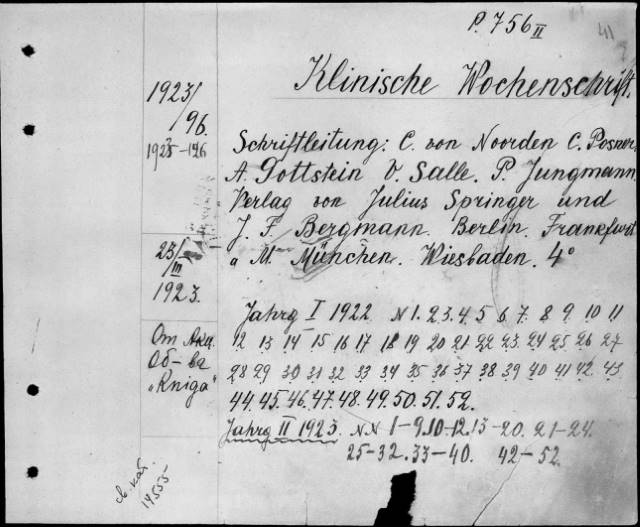 P. 756 II
41
Klinische Wochenschrift.
1923/
96.
1925-126
Schriftleitung: C. von Noorden C. Posner,
A. Gottstein V. Salle. P. Jungmann
Verlag von Julius Springer und
J. F. Bergmann. Berlin. Frankfurt
a M. München. Wiesbaden. 4°
23/
III
1923.
От Акц.
Об-ва
"Kniga"
Jahrg I 1922 N 1. 2. 3. 4. 5 6 7. 8 9. 10 11
12 13 14 15 16 17 18 19 20 21 22 23. 24 25. 26 27
28 29 30 31 32 33 34 35 36 37 38 39 40 41 42. 43
44. 45. 46. 47. 48. 49. 50. 51. 52.
Jahrg II 1923. N.N 1-9. 10-12. 13-20. 21-24.
25-32. 33-40. 42-52.
св. кат.
14555-